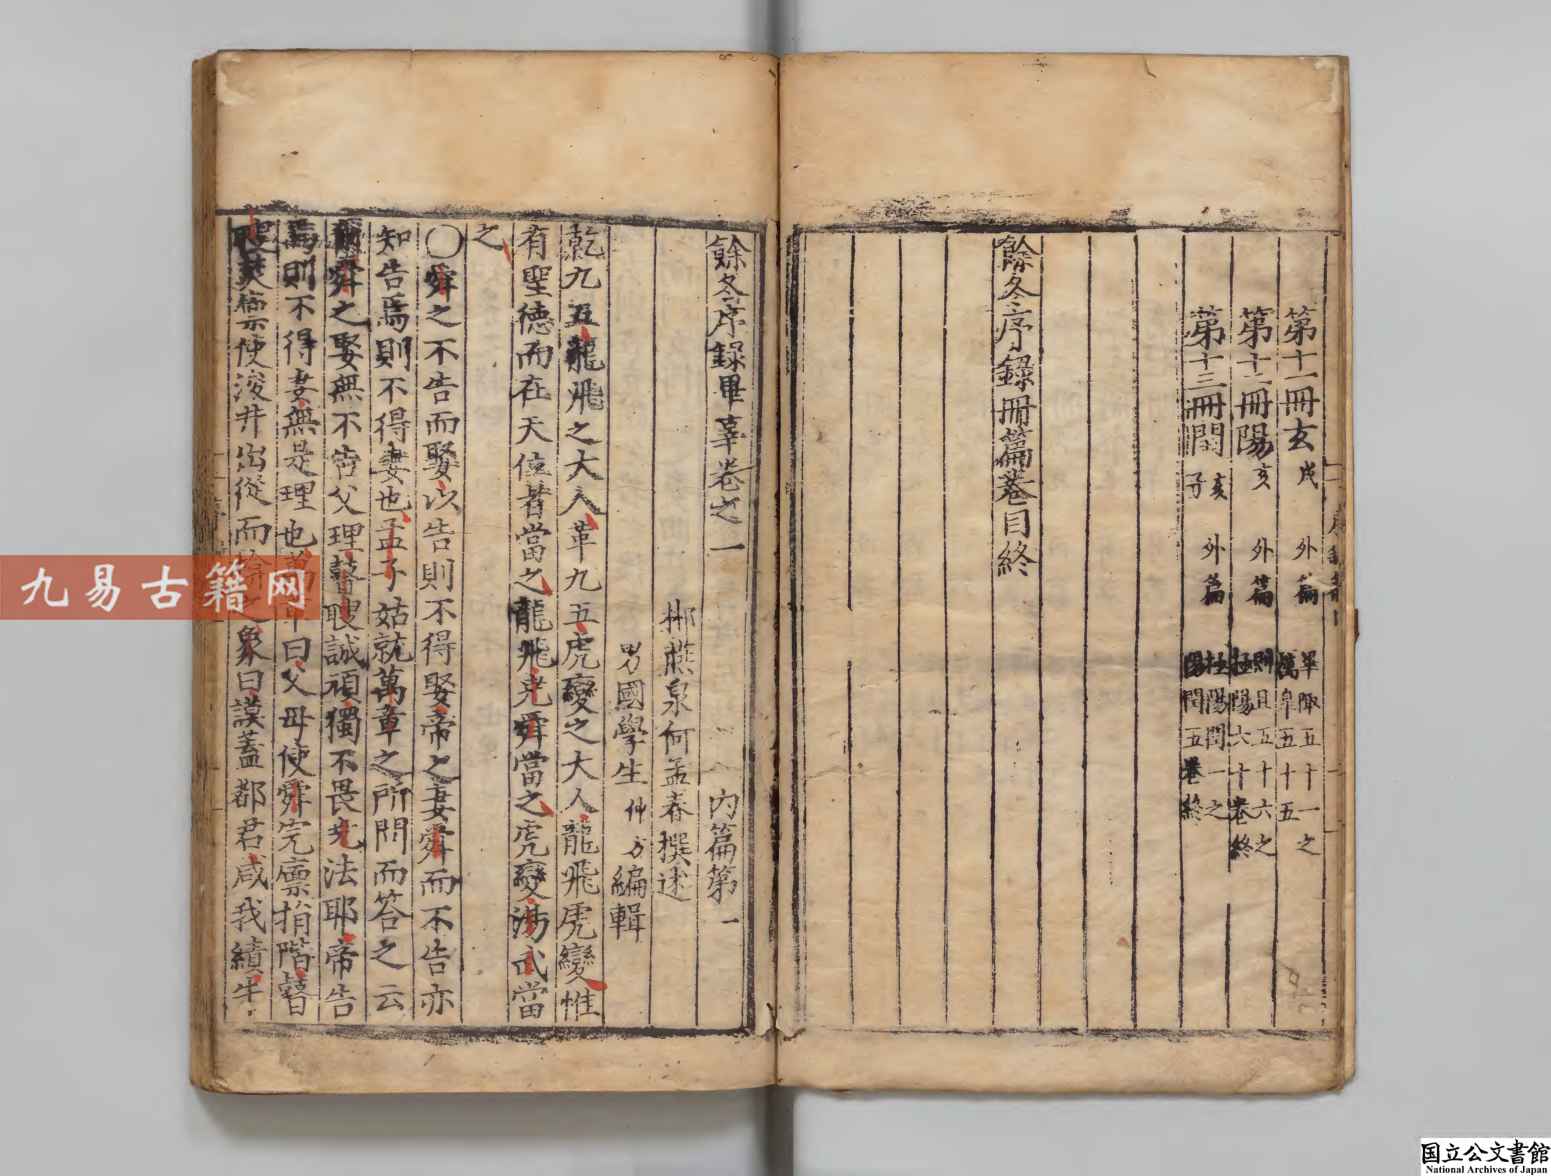 第十一冊玄戌 外篇 畢陬五十一之
萬皐五十五
第十二冊陽亥 外篇 則且五十六之
極陽六十卷終
第十三冊閏亥子 外篇 極陽閏一之
陽閏五卷終
餘冬序錄冊篇卷目終
餘冬序錄畢辜卷之一 內篇第一
郴燕泉何孟春撰述
男國學生仲方編輯
乾九五龍飛之大人革九五虎變之大人龍飛虎變惟
有聖德而在天位者當之龍飛堯舜當之虎變湯武當
之
○舜之不告而娶以告則不得娶帝之妻舜而不告亦
知告焉則不得妻也孟子姑就萬章之所問而答之云
爾舜之娶無不告父理瞽瞍誠頑獨不畏堯法耶帝告
焉則不得妻無是理也萬章曰父母使舜完廩捐階瞽
瞍焚廩使浚井出從而揜之象曰謨蓋都君咸我績牛
九易古籍网
国立公文書館
National Archives of Japan